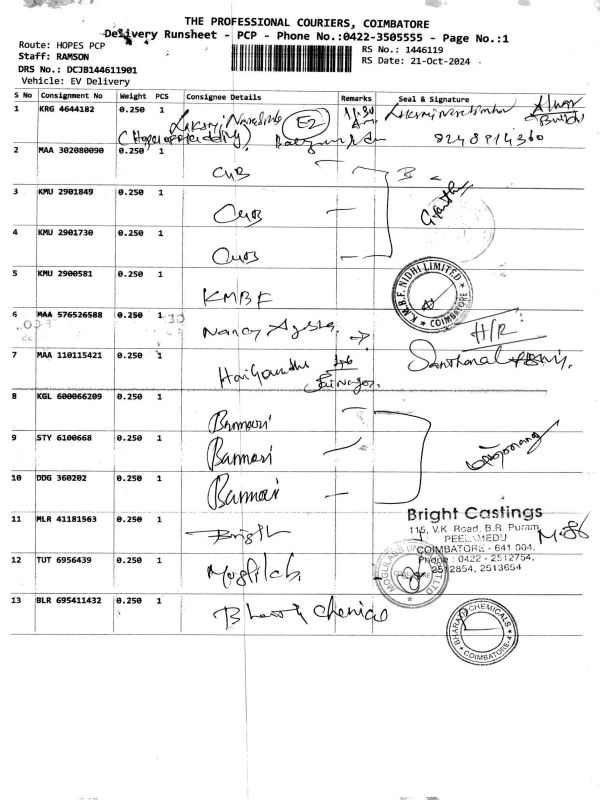 THE PROFESSIONAL COURIERS, COIMBATORE
Delivery Runsheet - PCP - Phone No.:0422-3505555 - Page No.:1
Route: HOPES PCP
RS No.: 1446119
Staff: RAMSON
RS Date: 21-Oct-2024
DRS No.: DCJB144611901
Vehicle: EV Delivery
S No Consignment No Weight PCS Consignee Details Remarks Seal & Signature
1 KRG 4644182 0.250 1 E2 11.30
8248914360
2 MAA 302080090 0.250 1 CUB
3 KMU 2901849 0.250 1 CUB
4 KMU 2901730 0.250 1 CUB
5 KMU 2900581 0.250 1 KMBF
K.M.B.F. NIDHI LIMITED
COIMBATORE
6 MAA 576526588 0.250 1 Nancy H/R
7 MAA 110115421 0.250 1
8 KGL 600066209 0.250 1 Bannari
9 STY 6100668 0.250 1 Bannari
10 DDG 360202 0.250 1 Bannari
11 MLR 41181563 0.250 1 Bright
Bright Castings
115, V.K. Road, B.R. Puram,
PEELAMEDU
COIMBATORE - 641 004.
Phone : 0422 - 2512754,
2512854, 2513654
12 TUT 6956439 0.250 1
13 BLR 695411432 0.250 1 Bharat Chemical
BHARAT CHEMICALS
COIMBATORE-4